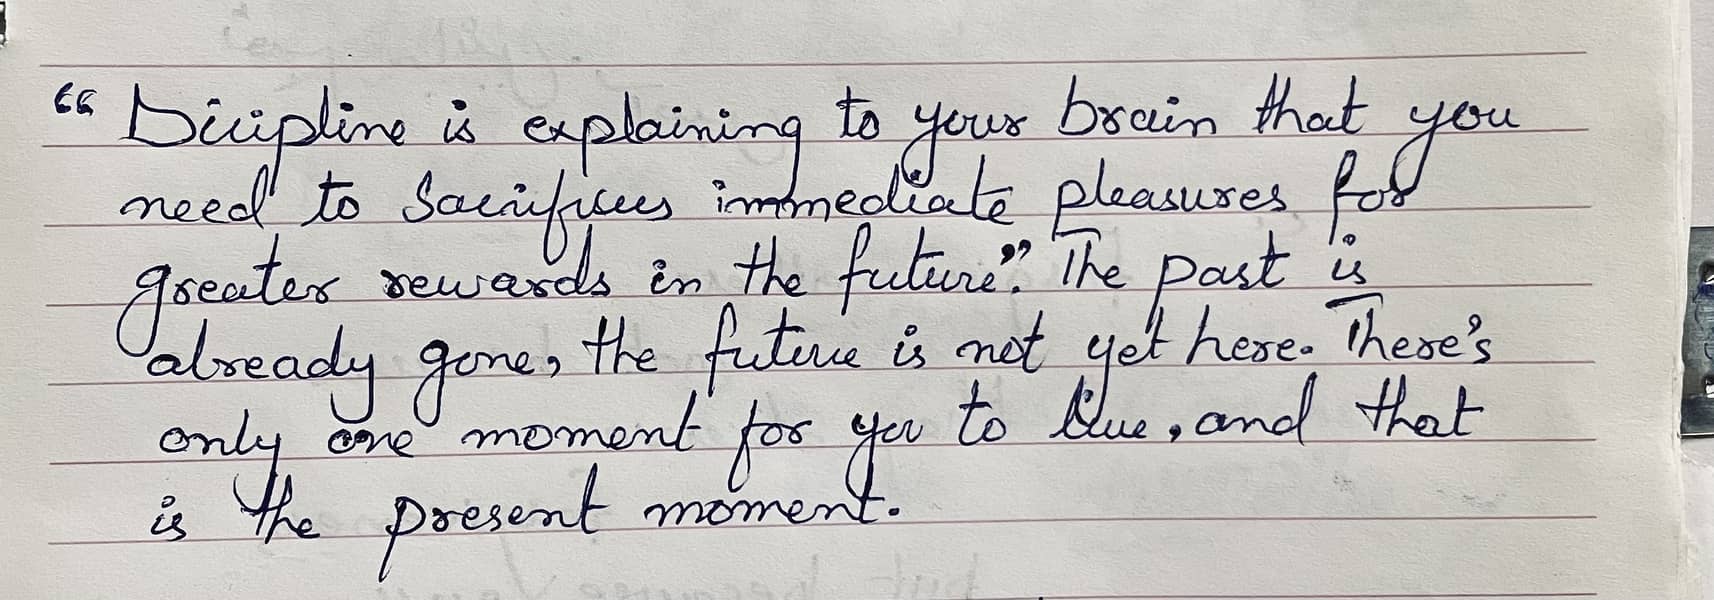 “ Dicipline is explaining to your brain that you
need to Sacrifices immediate pleasures for
greater rewards in the future”. The past is
already gone, the future is not yet here. There's
only one moment for you to live, and that
is the present moment.